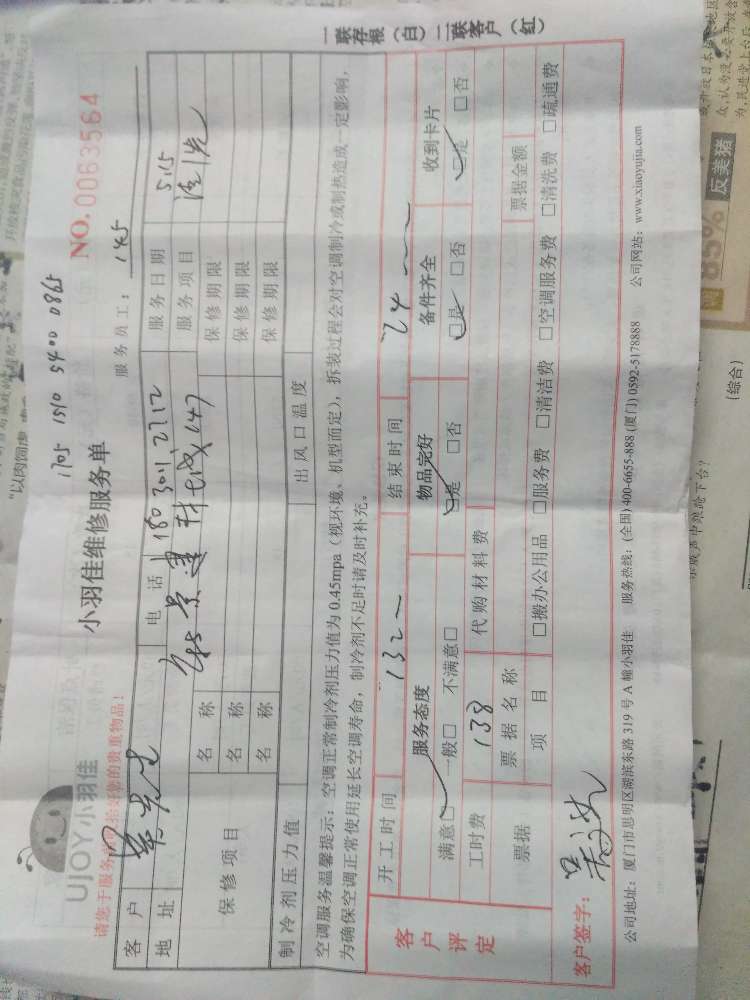 UJOY小羽佳
小羽佳维修服务单
1705 1510 5400 0865
NO. 0063564
请您于服务前收拾好您的贵重物品!
服务员工: 145
客户 电话 180 3011 2712 服务日期 5.15
地址 服务项目
保修项目 名称 保修期限
名称 保修期限
名称 保修期限
制冷剂压力值 出风口温度
空调服务温馨提示:空调正常制冷剂压力值为0.45mpa(视环境、机型而定),拆装过程会对空调制冷或制热造成一定影响,
为确保空调正常使用延长空调寿命,制冷剂不足时请及时补充。
一联存根(白)二联客户(红)
客户评定
开工时间 结束时间
服务态度 物品完好 备件齐全 收到卡片
满意□ 一般□ 不满意□ □是 □否 □是 □否 □是 □否
工时费 138 代购材料费
票据 票据名称 票据金额
项目 □搬办公用品 □服务费 □清洁费 □空调服务费 □清洗费 □疏通费
客户签字:
公司地址:厦门市思明区湖滨东路319号A幢小羽佳 服务热线:(全国)400-6655-888 (厦门)0592-5178888 公司网站:www.xiaoyujia.com
85%
反美猪
(综合)